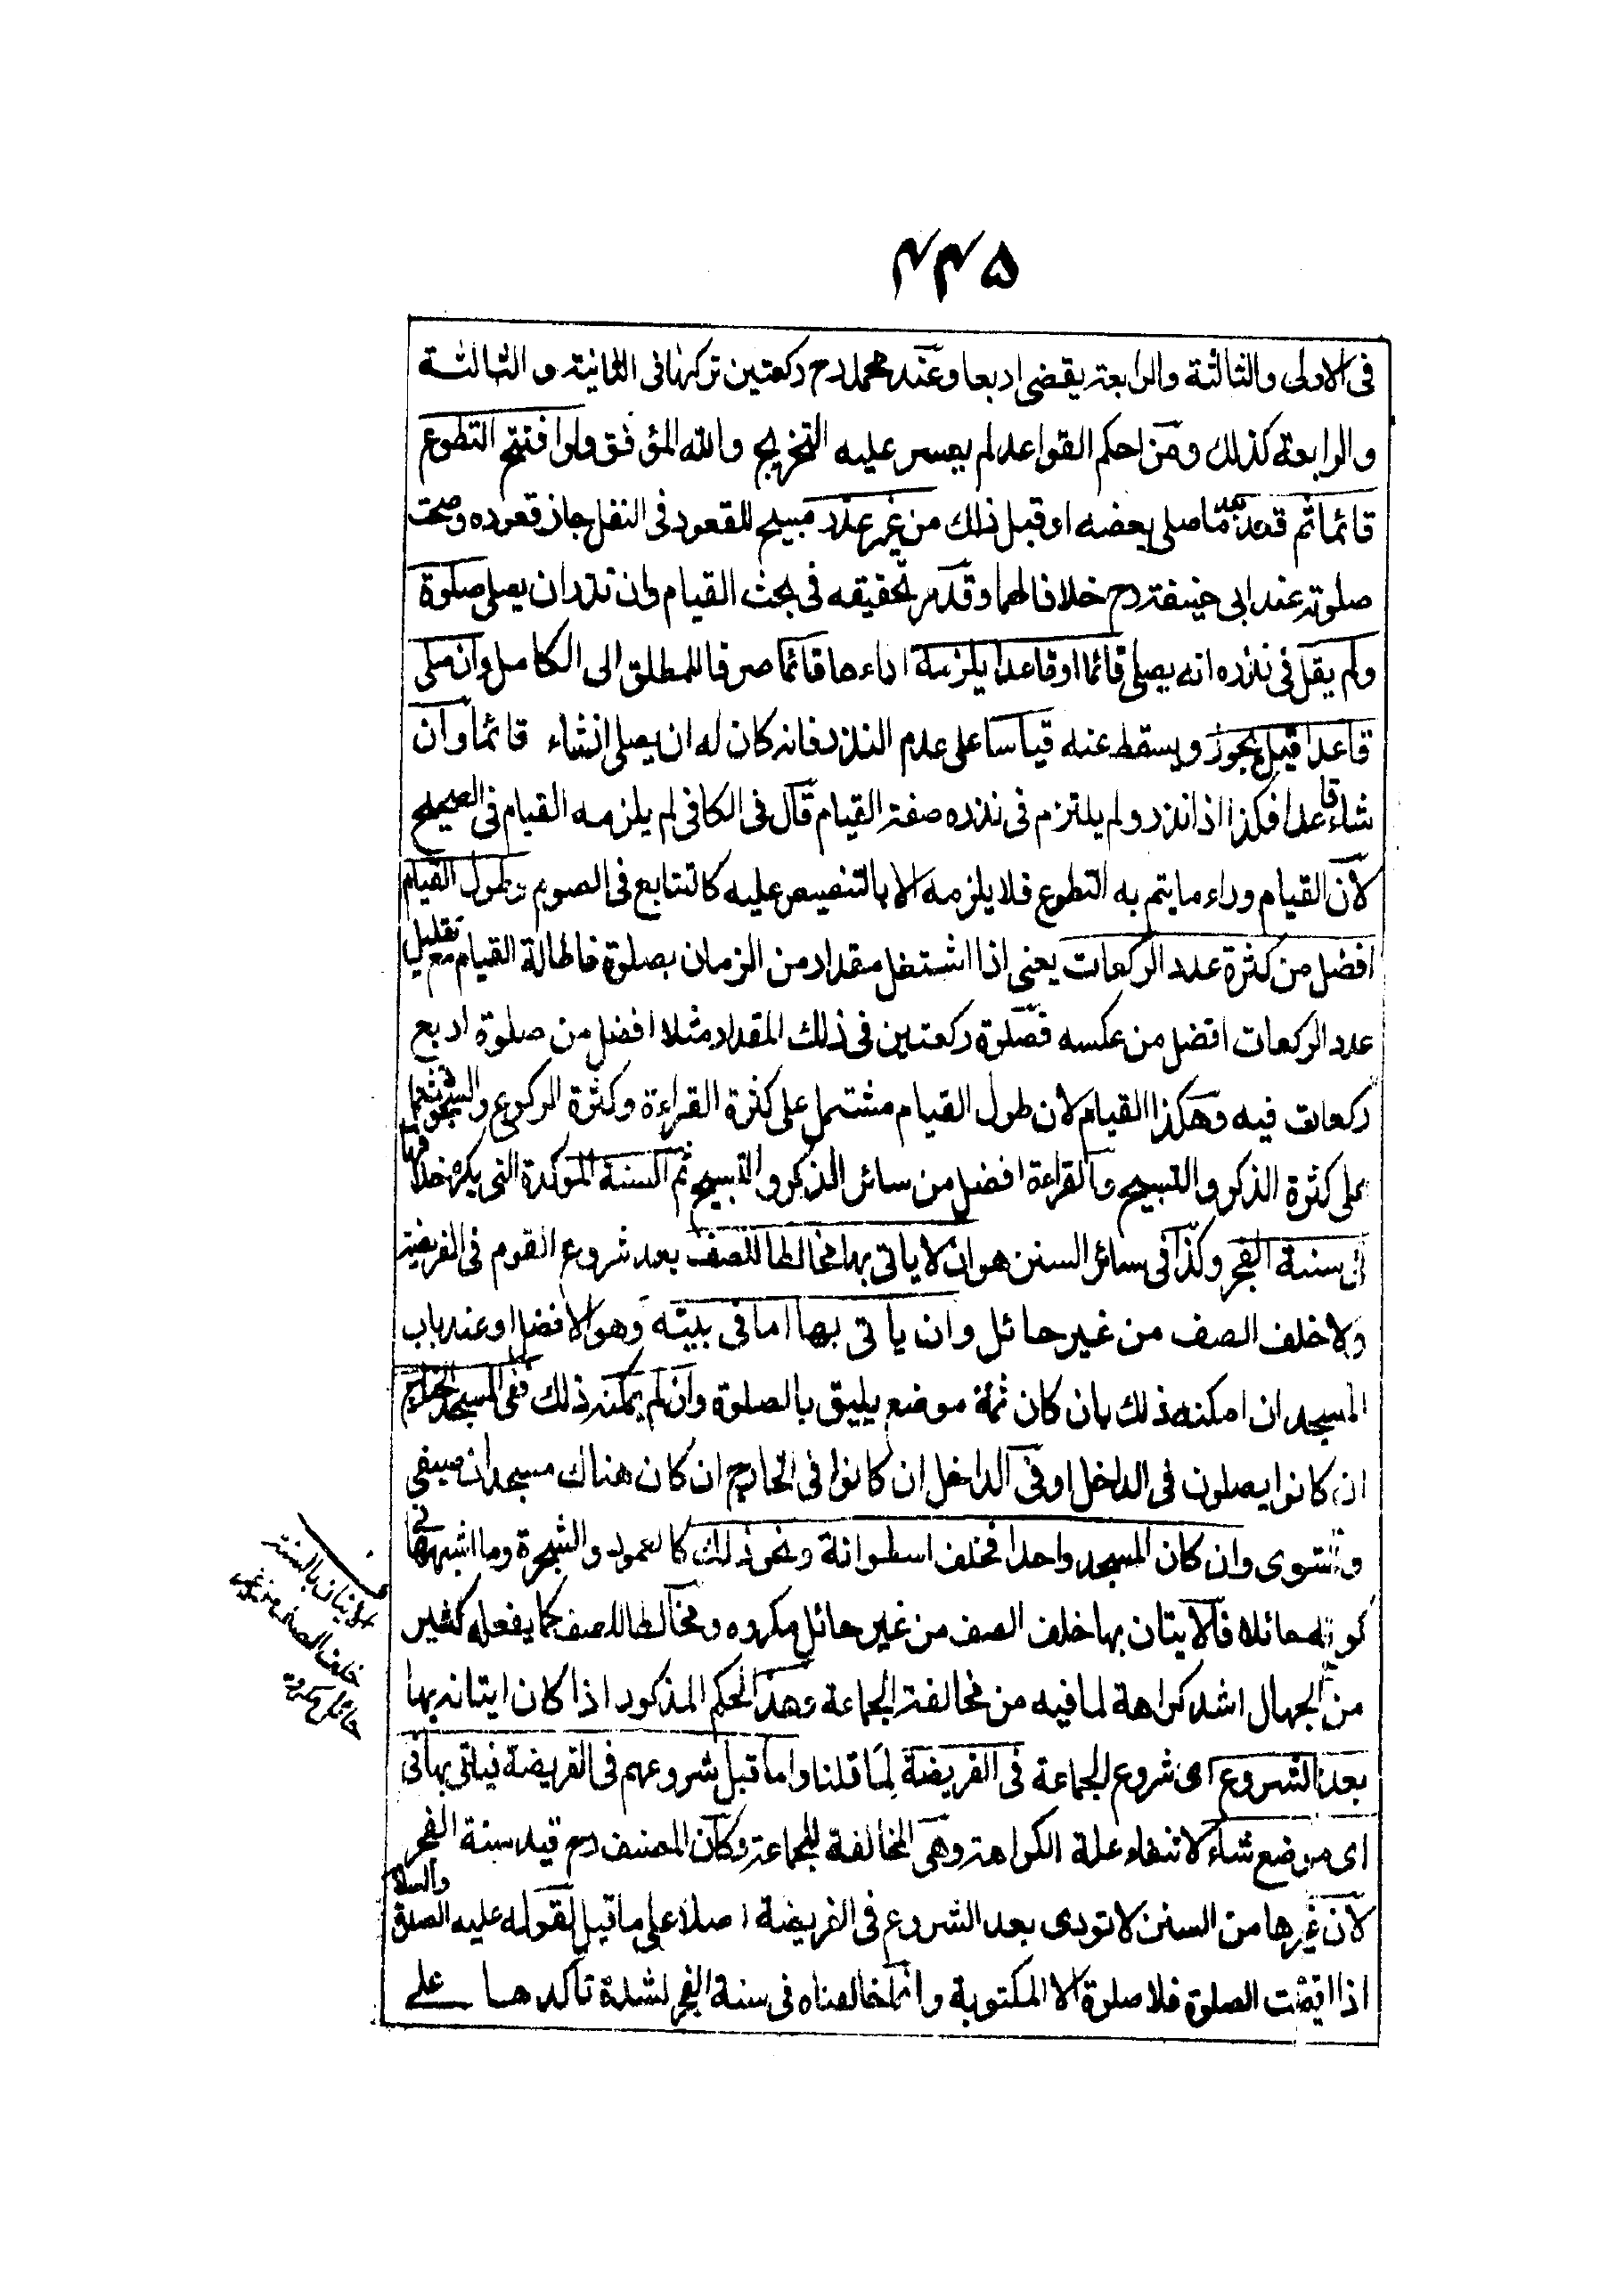 ۴۴۵
فى الاولى والثالثة والرابعة يقضى اربعا وعند محمد رح ركعتين تركها فى الثانية و الثالثة
والرابعة كذلك ومن احكم القواعد لم يعسر عليه التخريج والله المؤفق ولو افتتح التطوع
قائما ثم قعد بعد ما صلى بعضه او قبل ذلك من غير عذر مبيح للقعود فى النفل جاز قعوده وصحت
صلوته عند ابى حنيفة رح خلافا لهما وقد مر تحقيقه فى بحث القيام وان نذر ان يصلى صلوة
ولم يقل فى نذره انه يصلى قائما او قاعدا يلزمه اداءها قائما صرفا للمطلق الى الكامل وان صلى
قاعدا قيل يجوز ويسقط عنه قياسا على عدم النذر فانه كان له ان يصلى انشاء قائما وان
شاء قاعدا فكذا اذا نذر ولم يلتزم فى نذره صفة القيام قال فى الكافى لم يلزمه القيام فى الصحيح
لان القيام وراء ما يتم به التطوع فلا يلزمه الا بالتنصيص عليه كالتتابع فى الصوم وطول القيام
افضل من كثرة عدد الركعات يعنى اذا اشتغل مقدار من الزمان بصلوة فاطالة القيام مع تقليل
عدد الركعات افضل من عكسه فصلوة ركعتين فى ذلك المقدار مثلا افضل من صلوة اربع
ركعات فيه وهكذا القيام لان طول القيام مشتمل على كثرة القراءة وكثرة الركوع والسجود تشتمل
على كثرة الذكر والتسبيح والقراءة افضل من سائر الذكر والتسبيح ثم السنة المؤكدة التى يكره خلافها
فى سنة الفجر وكذا فى سائر السنن هو ان لا ياتى بها مخالطا للصف بعد شروع القوم فى الفريضة
ولا خلف الصف من غير حائل وان ياتى بها اما فى بيته وهو الافضل او عند باب
المسجد ان امكنه ذلك بان كان ثمة موضع يليق بالصلوة وان لم يمكنه ذلك ففى المسجد الخارج
ان كانوا يصلون فى الداخل او فى الداخل ان كانوا فى الخارج ان كان هناك مسجدان صيفى
وشتوى وان كان المسجد واحدا فخلف اسطوانة ونحو ذلك كالعمود والشجرة وما اشبهها فى
كونه حائلا فالاتيان بها خلف الصف من غير حائل مكروه ومخالطا للصف كما يفعله كثير
من الجهال اشد كراهة لما فيه من مخالفة الجماعة وهذا الحكم المذكور اذا كان اتيانه بها
بعد الشروع اى شروع الجماعة فى الفريضة لما قلنا واما قبل شروعهم فى الفريضة فياتى بها فى
اى موضع شاء لانتفاء علة الكراهة وهى المخالفة للجماعة وكان المصنف رح قيد سنة الفجر
لان غيرها من السنن لا تودى بعد الشروع فى الفريضة اصلا على ما قيل لقوله عليه الصلوة والسلام
اذا اقيمت الصلوة فلا صلوة الا المكتوبة وانما خالفناه فى سنة الفجر لشدة تاكدها على
الاتيان بالسنة
خلف الصف من غير
حائل مكروه